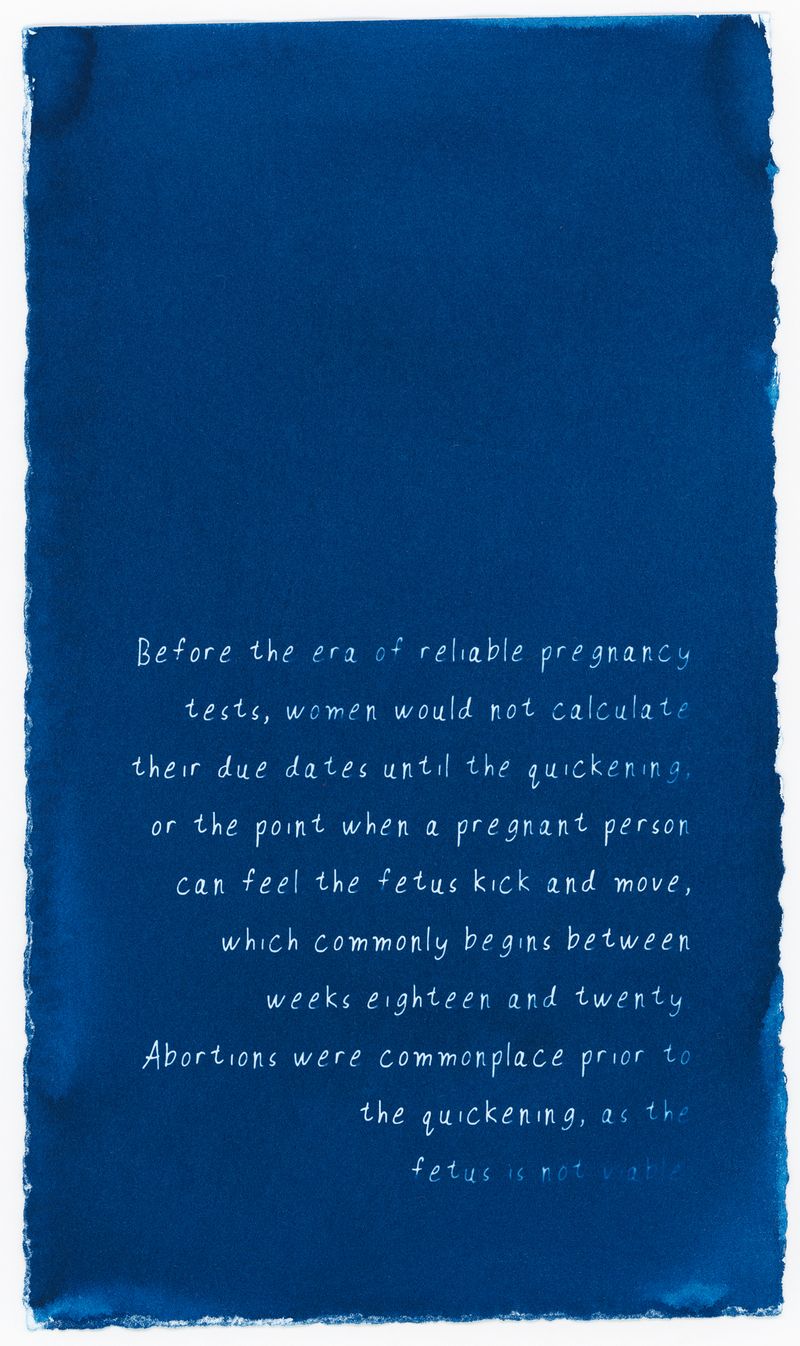 Before the era of reliable pregnancy
tests, women would not calculate
their due dates until the quickening,
or the point when a pregnant person
can feel the fetus kick and move,
which commonly begins between
weeks eighteen and twenty
Abortions were commonplace prior to
the quickening, as the
fetus is not viable